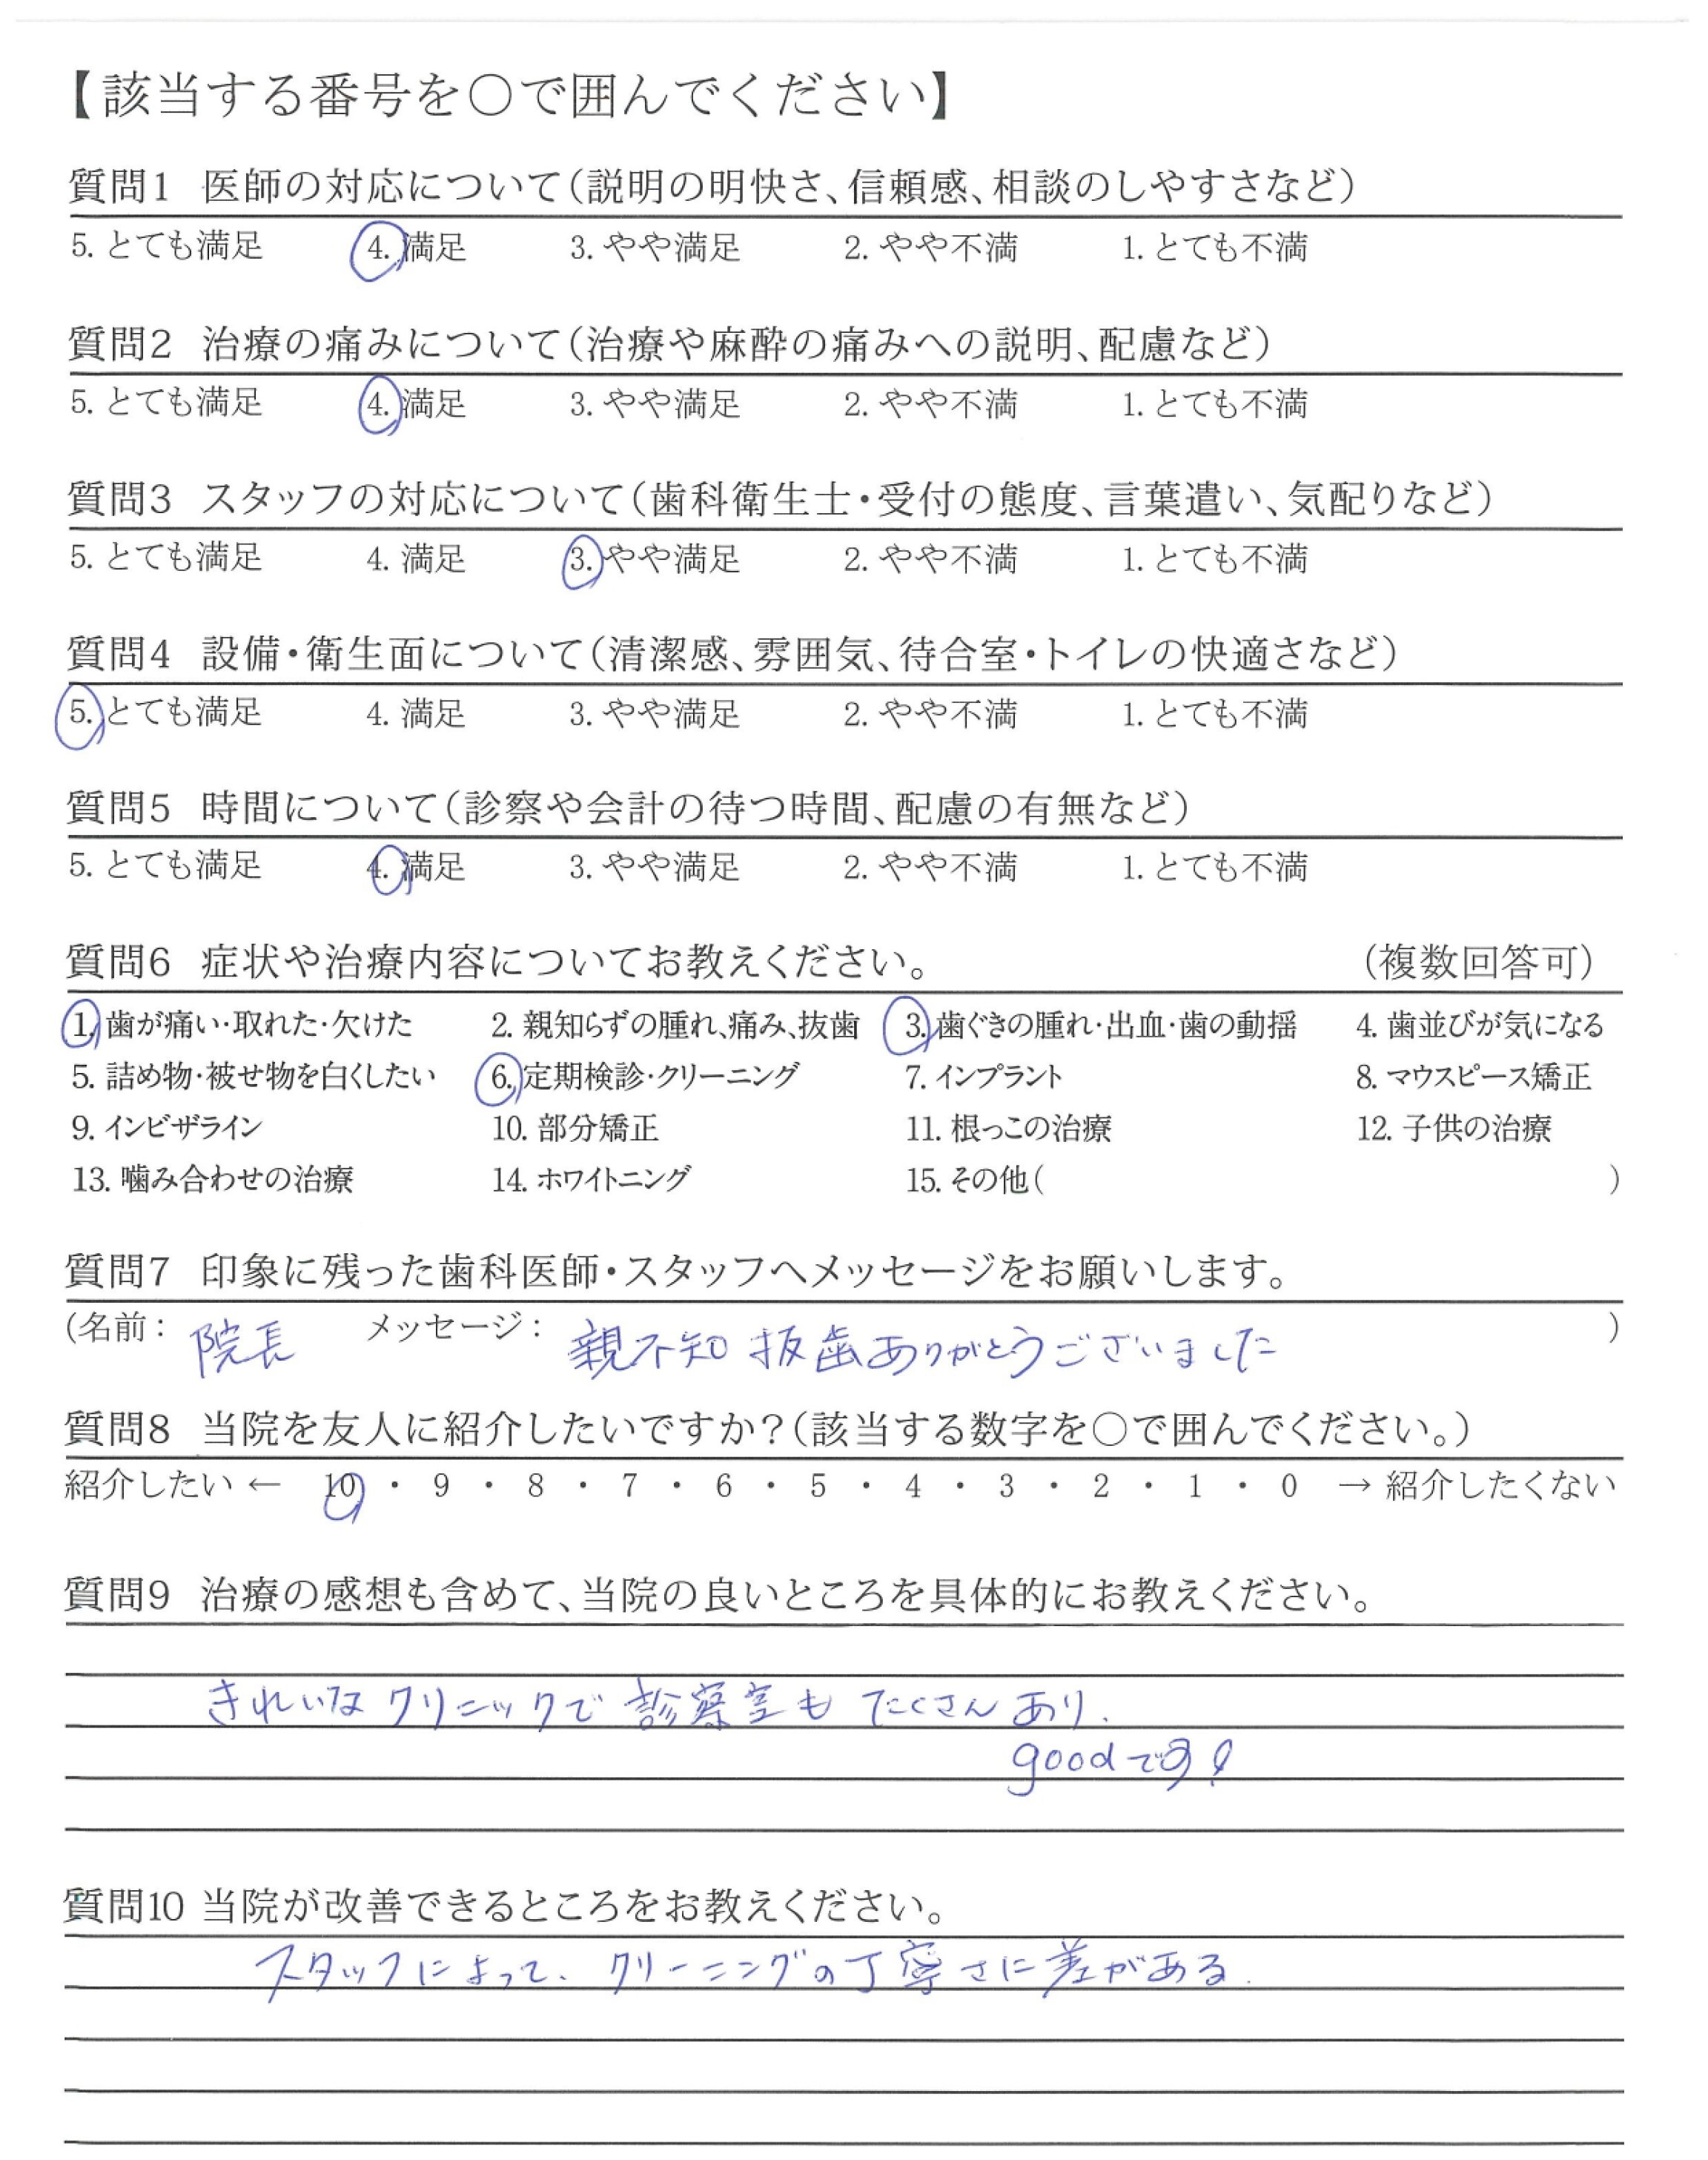 【該当する番号を〇で囲んでください】
質問1 医師の対応について(説明の明快さ、信頼感、相談のしやすさなど)
5. とても満足 4. 満足 3. やや満足 2. やや不満 1. とても不満
質問2 治療の痛みについて(治療や麻酔の痛みへの説明、配慮など)
5. とても満足 4. 満足 3. やや満足 2. やや不満 1. とても不満
質問3 スタッフの対応について(歯科衛生士・受付の態度、言葉遣い、気配りなど)
5. とても満足 4. 満足 3. やや満足 2. やや不満 1. とても不満
質問4 設備・衛生面について(清潔感、雰囲気、待合室・トイレの快適さなど)
5. とても満足 4. 満足 3. やや満足 2. やや不満 1. とても不満
質問5 時間について(診察や会計の待つ時間、配慮の有無など)
5. とても満足 4. 満足 3. やや満足 2. やや不満 1. とても不満
質問6 症状や治療内容についてお教えください。 (複数回答可)
1. 歯が痛い・取れた・欠けた 2. 親知らずの腫れ、痛み、抜歯 3. 歯ぐきの腫れ・出血・歯の動揺 4. 歯並びが気になる
5. 詰め物・被せ物を白くしたい 6. 定期検診・クリーニング 7. インプラント 8. マウスピース矯正
9. インビザライン 10. 部分矯正 11. 根っこの治療 12. 子供の治療
13. 噛み合わせの治療 14. ホワイトニング 15. その他( )
質問7 印象に残った歯科医師・スタッフへメッセージをお願いします。
(名前： 院長 メッセージ： 親不知 抜歯ありがとうございました )
質問8 当院を友人に紹介したいですか?(該当する数字を〇で囲んでください。)
紹介したい ← 10 ・ 9 ・ 8 ・ 7 ・ 6 ・ 5 ・ 4 ・ 3 ・ 2 ・ 1 ・ 0 → 紹介したくない
質問9 治療の感想も含めて、当院の良いところを具体的にお教えください。
きれいな クリニックで 診察室も たくさん あり.
goodです!
質問10 当院が改善できるところをお教えください。
スタッフによって、クリーニングの丁寧さに差がある.